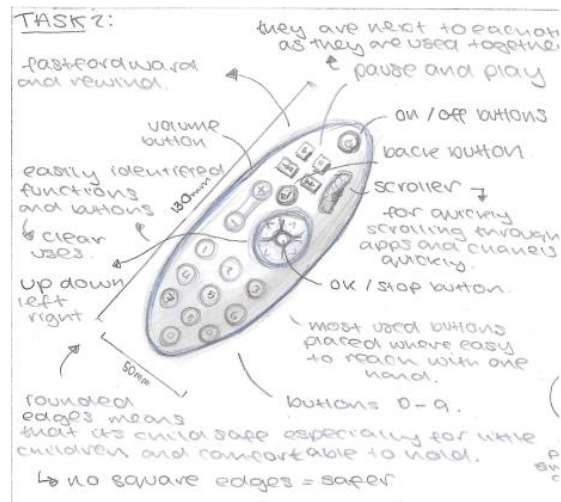 TASK 2:
they are next to eachoth
as they are used togethe
pause and play
fastfordward
and rewind.
on / off buttons
volume
button
back button
easily identified
functions
and buttons
scroller
for quickly
scrolling through
apps and channels
quickly.
clear
uses.
130mm
up down
left
right
OK / stop button.
most used buttons
placed where easy
to reach with one
hand.
50mm
buttons 0-9.
rounded
edges means
that its child safe especially for little
children and comfortable to hold.
no square edges = safer